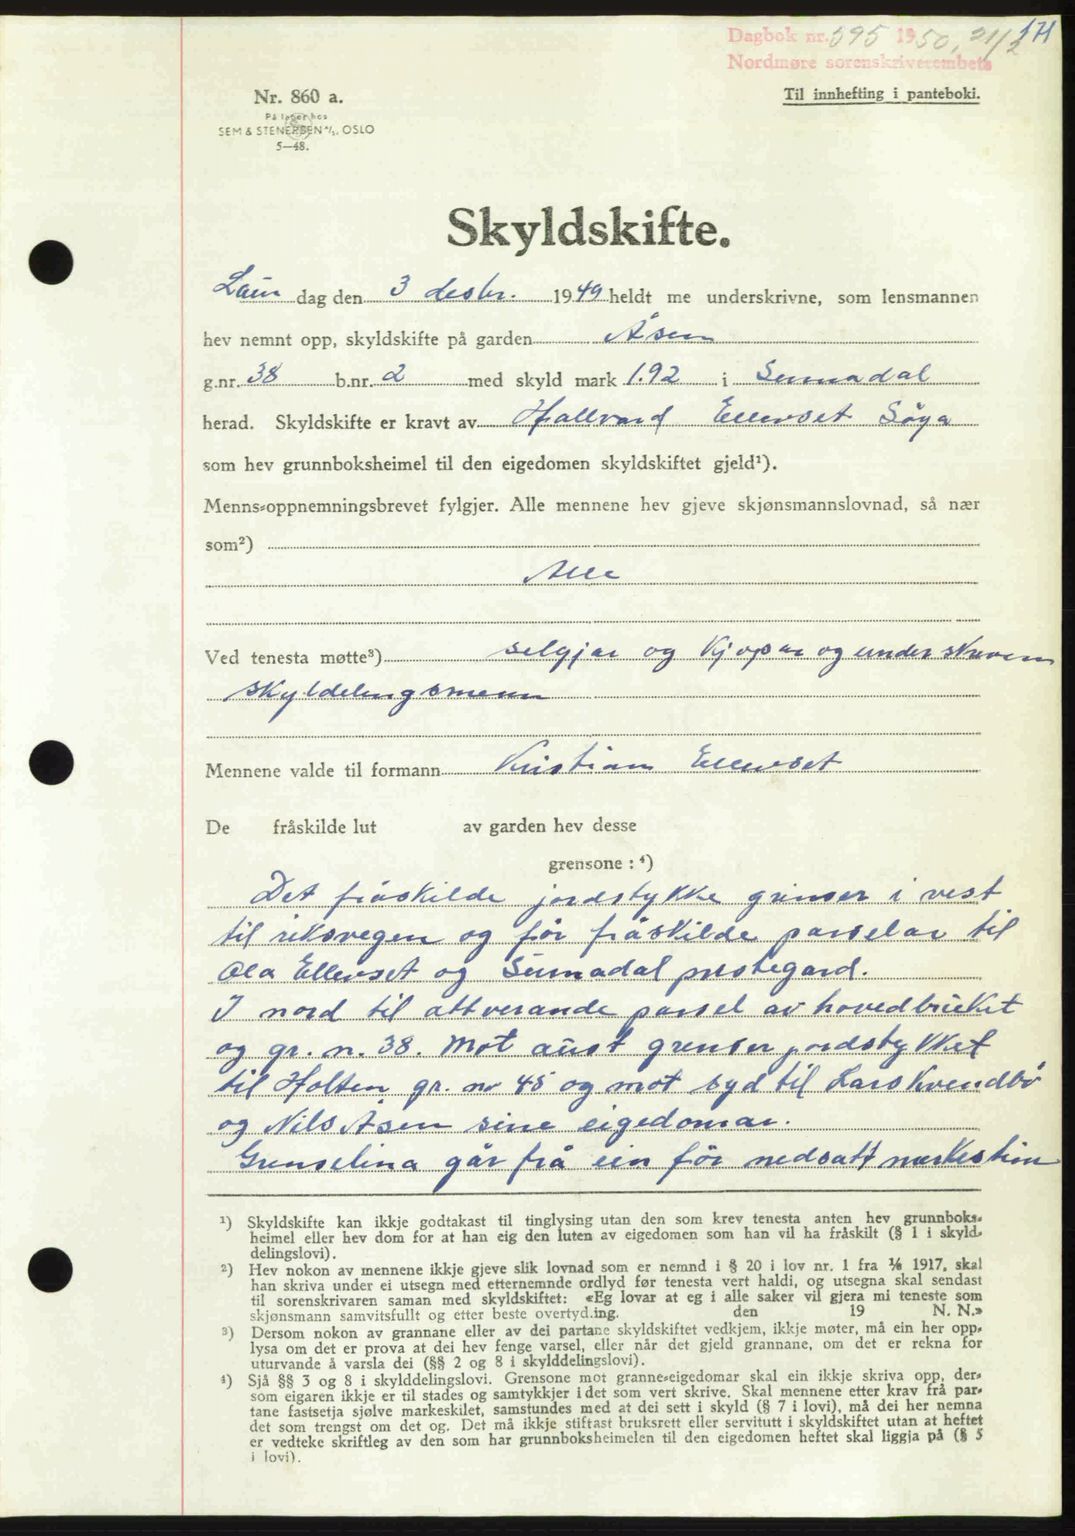 Dagbok nr. 595 1950, 21/2 171
Nordmøre sorenskriverembete
Nr. 860 a.
Til innhefting i panteboki.
På lager hos
SEM & STENERSEN A/S, OSLO
5—48.
Skyldskifte.
Laur dag den 3 desbr. 1949 heldt me underskrivne, som lensmannen
hev nemnt opp, skyldskifte på garden Åsen
g.nr. 38 b.nr. 2 med skyld mark 1.92 i Surnadal
herad. Skyldskifte er kravt av Hallvard Ellevset Søya
som hev grunnboksheimel til den eigedomen skyldskiftet gjeld¹).
Menns-oppnemningsbrevet fylgjer. Alle mennene hev gjeve skjønsmannslovnad, så nær
som²)
Alle
Ved tenesta møtte³) selgjar og Kjøpar og underskrevne
skyldelingsmenn
Mennene valde til formann Kristian Ellevset
De fråskilde lut av garden hev desse
grensone : ⁴)
Det fråskilde jordstykke grenser i vest
til riksvegen og før fråskilde parselar til
Ola Ellevset og Surnadal prestegard.
I nord til attverande parsel av hovedbruket
og gr. n. 38. Mot aust grenser jordstykket
til Holten gr. nr 45 og mot syd til Lars Kvendbø
og Nils Åsen sine eigedomar.
Grenselina går frå ein før nedsatt merkestein
¹) Skyldskifte kan ikkje godtakast til tinglysing utan den som krev tenesta anten hev grunnboks-
heimel eller hev dom for at han eig den luten av eigedomen som han vil ha fråskilt (§ 1 i skyld-
delingslovi).
²) Hev nokon av mennene ikkje gjeve slik lovnad som er nemnd i § 20 i lov nr. 1 fra 1/6 1917, skal
han skriva under ei utsegn med etternemnde ordlyd før tenesta vert haldi, og utsegna skal sendast
til sorenskrivaren saman med skyldskiftet: «Eg lovar at eg i alle saker vil gjera mi teneste som
skjønsmann samvitsfullt og etter beste overtyding. den 19 N. N.»
³) Dersom nokon av grannane eller av dei partane skyldskiftet vedkjem, ikkje møter, må ein her opp-
lysa om det er prova at dei hev fenge varsel, eller når det gjeld grannane, om det er rekna for
uturvande å varsla dei (§§ 2 og 8 i skylddelingslovi).
⁴) Sjå §§ 3 og 8 i skylddelingslovi. Grensone mot granne-eigedomar skal ein ikkje skriva opp, der-
som eigaren ikkje er til stades og samtykkjer i det som vert skrive. Skal mennene etter krav frå par-
tane fastsetja sjølve markeskilet, samstundes med at dei sett i skyld (§ 7 i lovi), må dei her nemna
det som trengst om det og. Det må ikkje stiftast bruksrett eller servitutt i skyldskiftet utan at heftet
er vedteke skriftleg av den som har grunnboksheimelen til den eigedomen heftet skal liggja på (§ 5
i lovi).